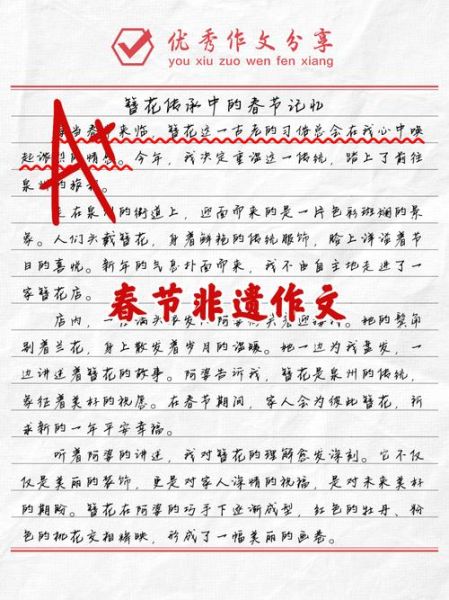 优秀作文分享
you xiu zuo wen fen xiang
簪花传承中的春节记忆
A+
当春来临，簪花这一古老的习俗总会在我心中唤
起的情感。今年，我决定重温这一传统，踏上了前往
泉的旅。
走在泉州的街道上，迎面而来的是一片色彩斑斓的景
象。人们头戴簪花，身着鲜艳的传统服饰，脸上洋溢着节
日的喜悦。新年的气息扑面而来，我不由自主地走进了一
家簪花店。
春节非遗作文
店内，一满头发阿婆迎。她的鬓角
别着兰花，身上散发着岁月的温暖。她一边为我盘发，一
边讲述着簪花的故事。阿婆告诉我，簪花是泉州的传统，
象征着美好的祝愿。在春节期间，家人会为彼此簪花，祈
求新的一年平安幸福。
听着阿婆的讲述，我对簪花的理解愈发深刻。它不仅
仅是美丽的装饰，更是对家人深情的祝福，是对未来美好
的期盼。簪花在阿婆的巧手下逐渐成型，红色的牡丹、粉
色的桃花交相辉映，形成了一幅美丽的画卷。